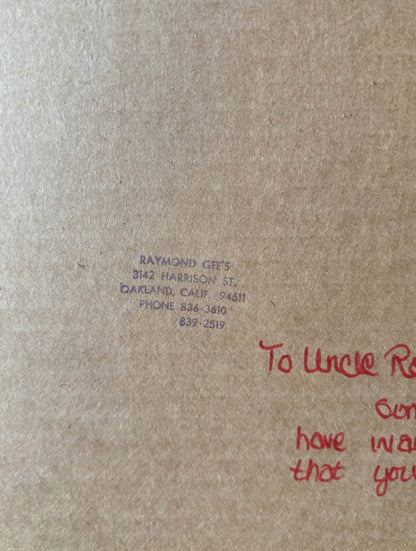 RAYMOND GEE'S
3142 HARRISON ST.
OAKLAND, CALIF. 94611
PHONE 836-3610
839-2519
To Uncle
have
that you